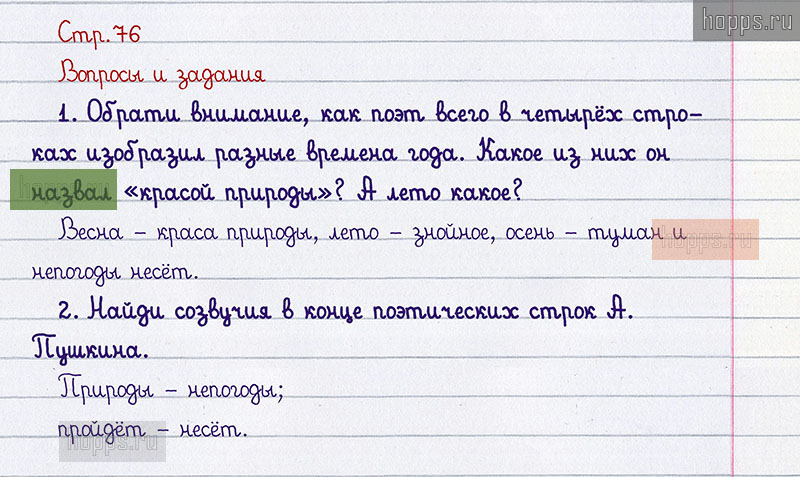 hopps.ru
Стр. 76
Вопросы и задания
1. Обрати внимание, как поэт всего в четырёх стро-
ках изобразил разные времена года. Какое из них он
назвал «красой природы»? А лето какое?
Весна – краса природы, лето – знойное, осень – туман и
hopps.ru
непогоды несёт.
2. Найди созвучия в конце поэтических строк А.
Пушкина.
Природы – непогоды;
пройдёт – несёт.
hopps.ru